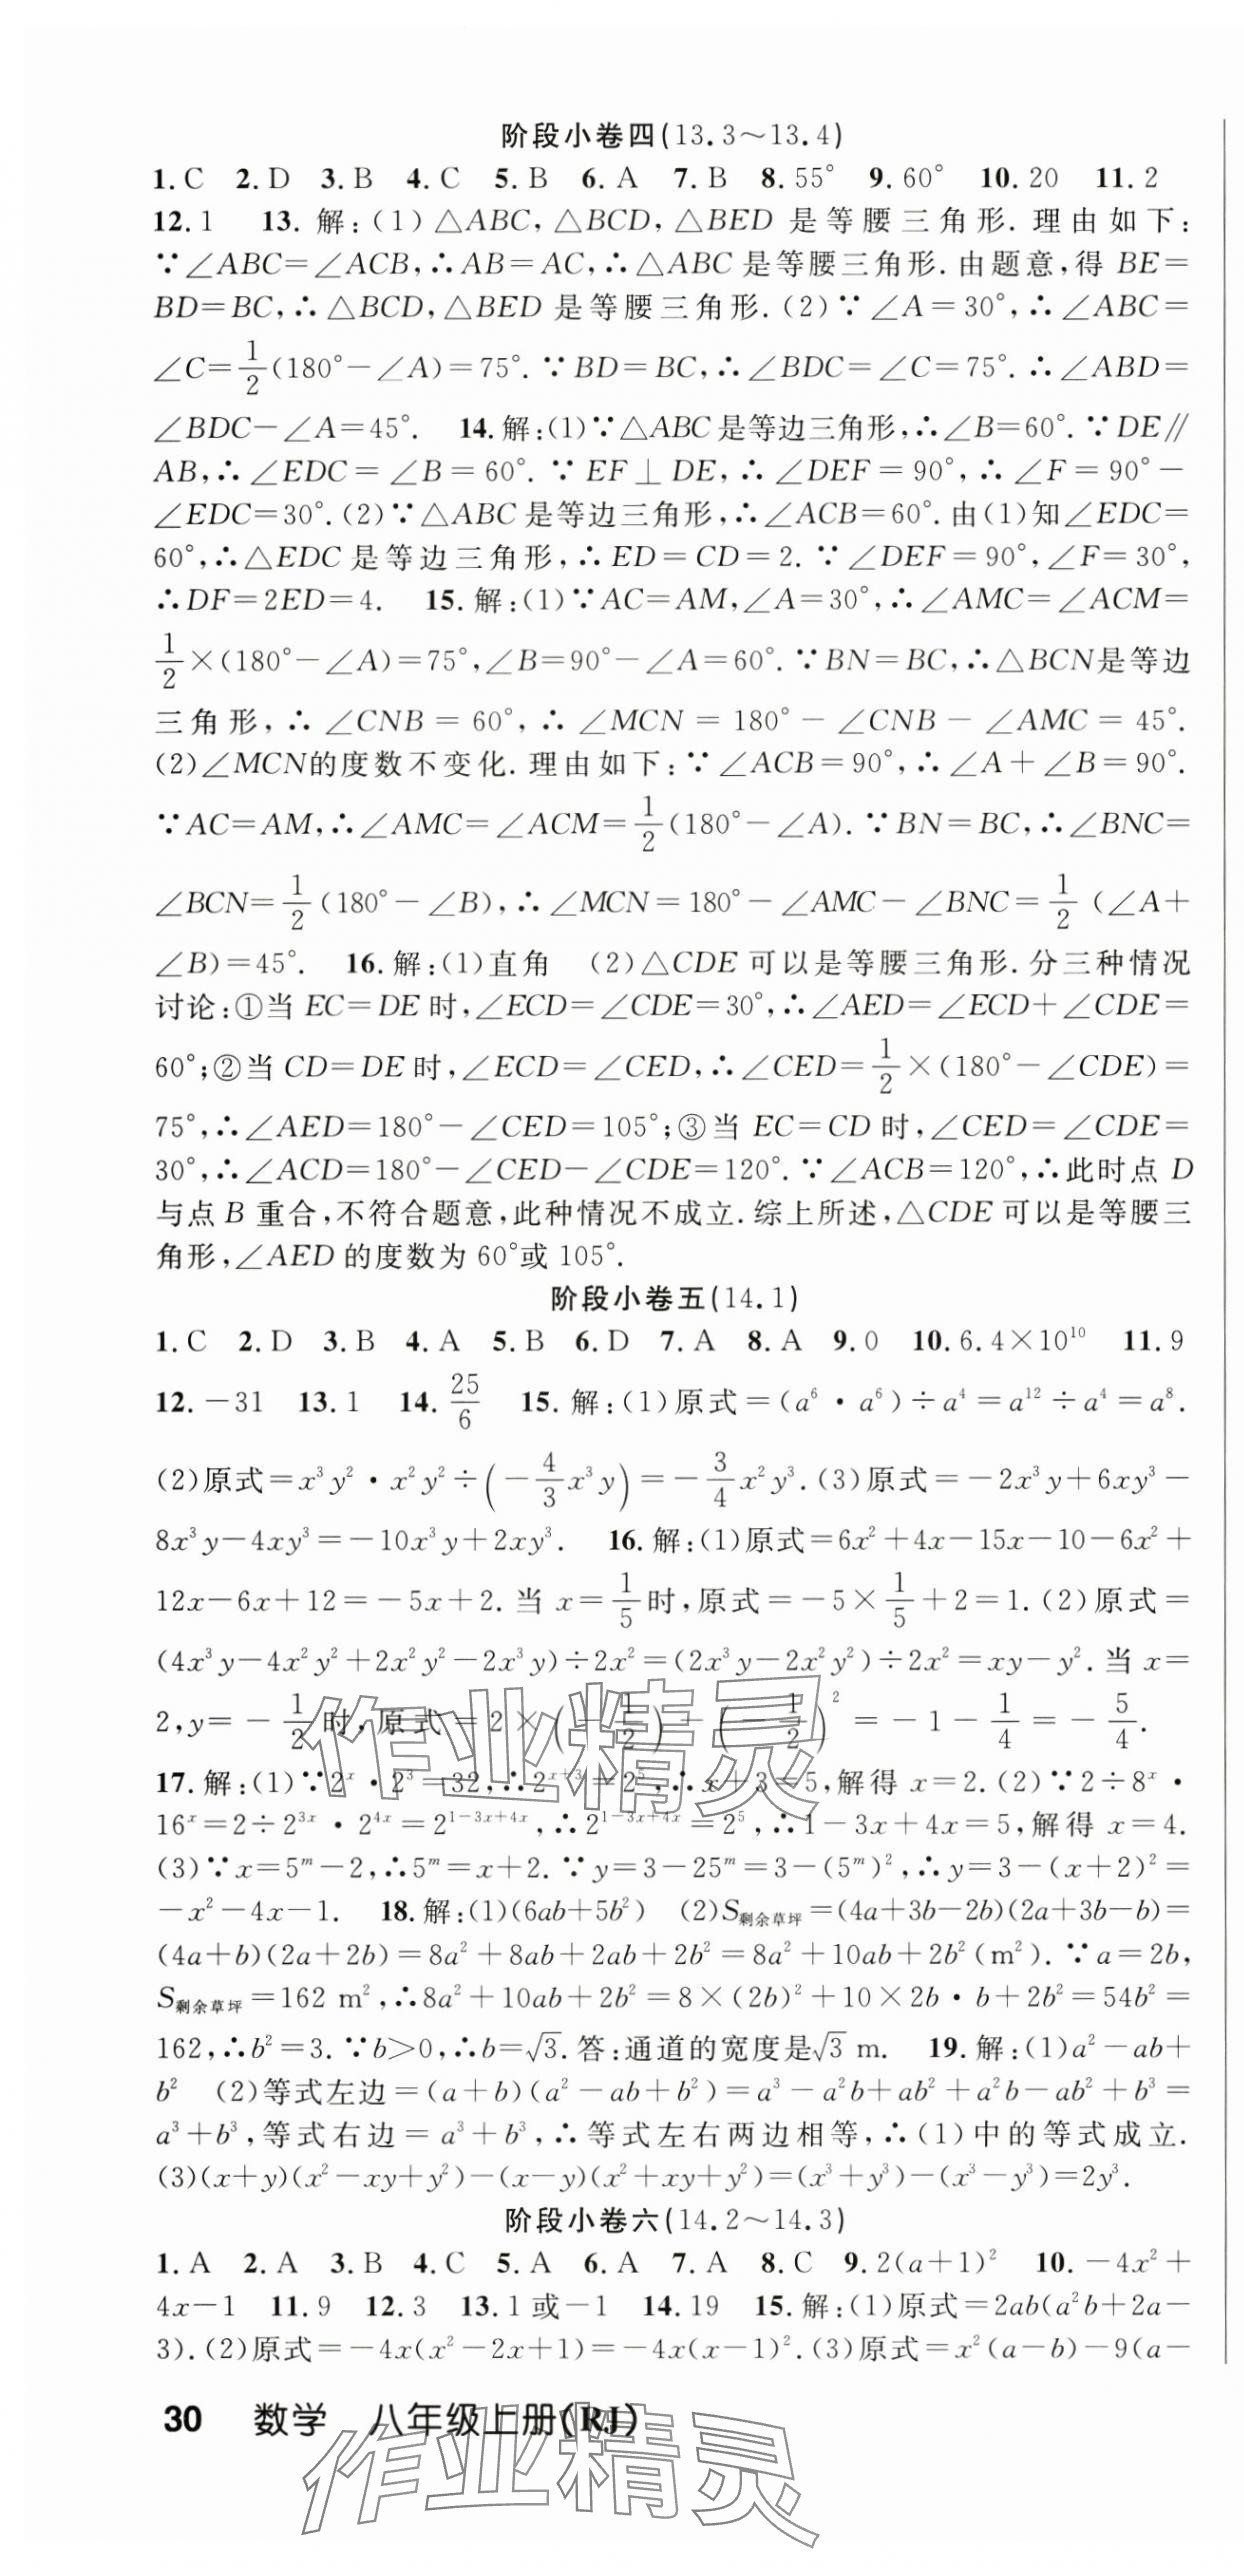 阶段小卷四(13.3～13.4)
1.C 2.D 3.B 4.C 5.B 6.A 7.B 8.55° 9.60° 10.20 11.2
12.1 13.解:(1)△ABC,△BCD,△BED 是等腰三角形.理由如下:
∵∠ABC=∠ACB,∴AB=AC,∴△ABC 是等腰三角形.由题意,得 BE=
BD=BC,∴△BCD,△BED 是等腰三角形.(2)∵∠A=30°,∴∠ABC=
∠C=1/2(180°-∠A)=75°.∵BD=BC,∴∠BDC=∠C=75°.∴∠ABD=
∠BDC-∠A=45°. 14.解:(1)∵△ABC是等边三角形,∴∠B=60°.∵DE∥
AB,∴∠EDC=∠B=60°.∵EF⊥DE,∴∠DEF=90°,∴∠F=90°-
∠EDC=30°.(2)∵△ABC是等边三角形,∴∠ACB=60°.由(1)知∠EDC=
60°,∴△EDC 是等边三角形,∴ED=CD=2.∵∠DEF=90°,∠F=30°,
∴DF=2ED=4. 15.解:(1)∵AC=AM,∠A=30°,∴∠AMC=∠ACM=
1/2×(180°-∠A)=75°,∠B=90°-∠A=60°.∵BN=BC,∴△BCN是等边
三角形,∴∠CNB=60°,∴∠MCN=180°-∠CNB-∠AMC=45°.
(2)∠MCN的度数不变化.理由如下:∵∠ACB=90°,∴∠A+∠B=90°.
∵AC=AM,∴∠AMC=∠ACM=1/2(180°-∠A).∵BN=BC,∴∠BNC=
∠BCN=1/2(180°-∠B),∴∠MCN=180°-∠AMC-∠BNC=1/2(∠A+
∠B)=45°. 16.解:(1)直角 (2)△CDE 可以是等腰三角形.分三种情况
讨论:①当 EC=DE 时,∠ECD=∠CDE=30°,∴∠AED=∠ECD+∠CDE=
60°;②当 CD=DE 时,∠ECD=∠CED,∴∠CED=1/2×(180°-∠CDE)=
75°,∴∠AED=180°-∠CED=105°;③当 EC=CD 时,∠CED=∠CDE=
30°,∴∠ACD=180°-∠CED-∠CDE=120°.∵∠ACB=120°,∴此时点 D
与点 B 重合,不符合题意,此种情况不成立.综上所述,△CDE 可以是等腰三
角形,∠AED 的度数为 60°或 105°.
阶段小卷五(14.1)
1.C 2.D 3.B 4.A 5.B 6.D 7.A 8.A 9.0 10.6.4×10¹⁰ 11.9
12.-31 13.1 14.25/6 15.解:(1)原式=(a⁶·a⁶)÷a⁴=a¹²÷a⁴=a⁸.
(2)原式=x³y²·x²y²÷(-4/3x³y)=-3/4x²y³.(3)原式=-2x³y+6xy³-
8x³y-4xy³=-10x³y+2xy³. 16.解:(1)原式=6x²+4x-15x-10-6x²+
12x-6x+12=-5x+2.当 x=1/5时,原式=-5×1/5+2=1.(2)原式=
(4x³y-4x²y²+2x²y²-2x³y)÷2x²=(2x³y-2x²y²)÷2x²=xy-y².当 x=
2,y=-1/2时,原式=2×(-1/2)-(-1/2)²=-1-1/4=-5/4.
17.解:(1)∵2ˣ·2³=32,∴2ˣ⁺³=2⁵,∴x+3=5,解得 x=2.(2)∵2÷8ˣ·
16ˣ=2÷2³ˣ·2⁴ˣ=2¹⁻³ˣ⁺⁴ˣ,∴2¹⁻³ˣ⁺⁴ˣ=2⁵,∴1-3x+4x=5,解得 x=4.
(3)∵x=5ᵐ-2,∴5ᵐ=x+2.∵y=3-25ᵐ=3-(5ᵐ)²,∴y=3-(x+2)²=
-x²-4x-1. 18.解:(1)(6ab+5b²) (2)S剩余草坪=(4a+3b-2b)(2a+3b-b)=
(4a+b)(2a+2b)=8a²+8ab+2ab+2b²=8a²+10ab+2b²(m²).∵a=2b,
S剩余草坪=162 m²,∴8a²+10ab+2b²=8×(2b)²+10×2b·b+2b²=54b²=
162,∴b²=3.∵b>0,∴b=√3.答:通道的宽度是√3 m. 19.解:(1)a²-ab+
b² (2)等式左边=(a+b)(a²-ab+b²)=a³-a²b+ab²+a²b-ab²+b³=
a³+b³,等式右边=a³+b³,∴等式左右两边相等,∴(1)中的等式成立.
(3)(x+y)(x²-xy+y²)-(x-y)(x²+xy+y²)=(x³+y³)-(x³-y³)=2y³.
阶段小卷六(14.2～14.3)
1.A 2.A 3.B 4.C 5.A 6.A 7.A 8.C 9.2(a+1)² 10.-4x²+
4x-1 11.9 12.3 13.1 或-1 14.19 15.解:(1)原式=2ab(a²b+2a-
3).(2)原式=-4x(x²-2x+1)=-4x(x-1)².(3)原式=x²(a-b)-9(a-
30 数学 八年级上册(RJ)
作业精灵
作业精灵